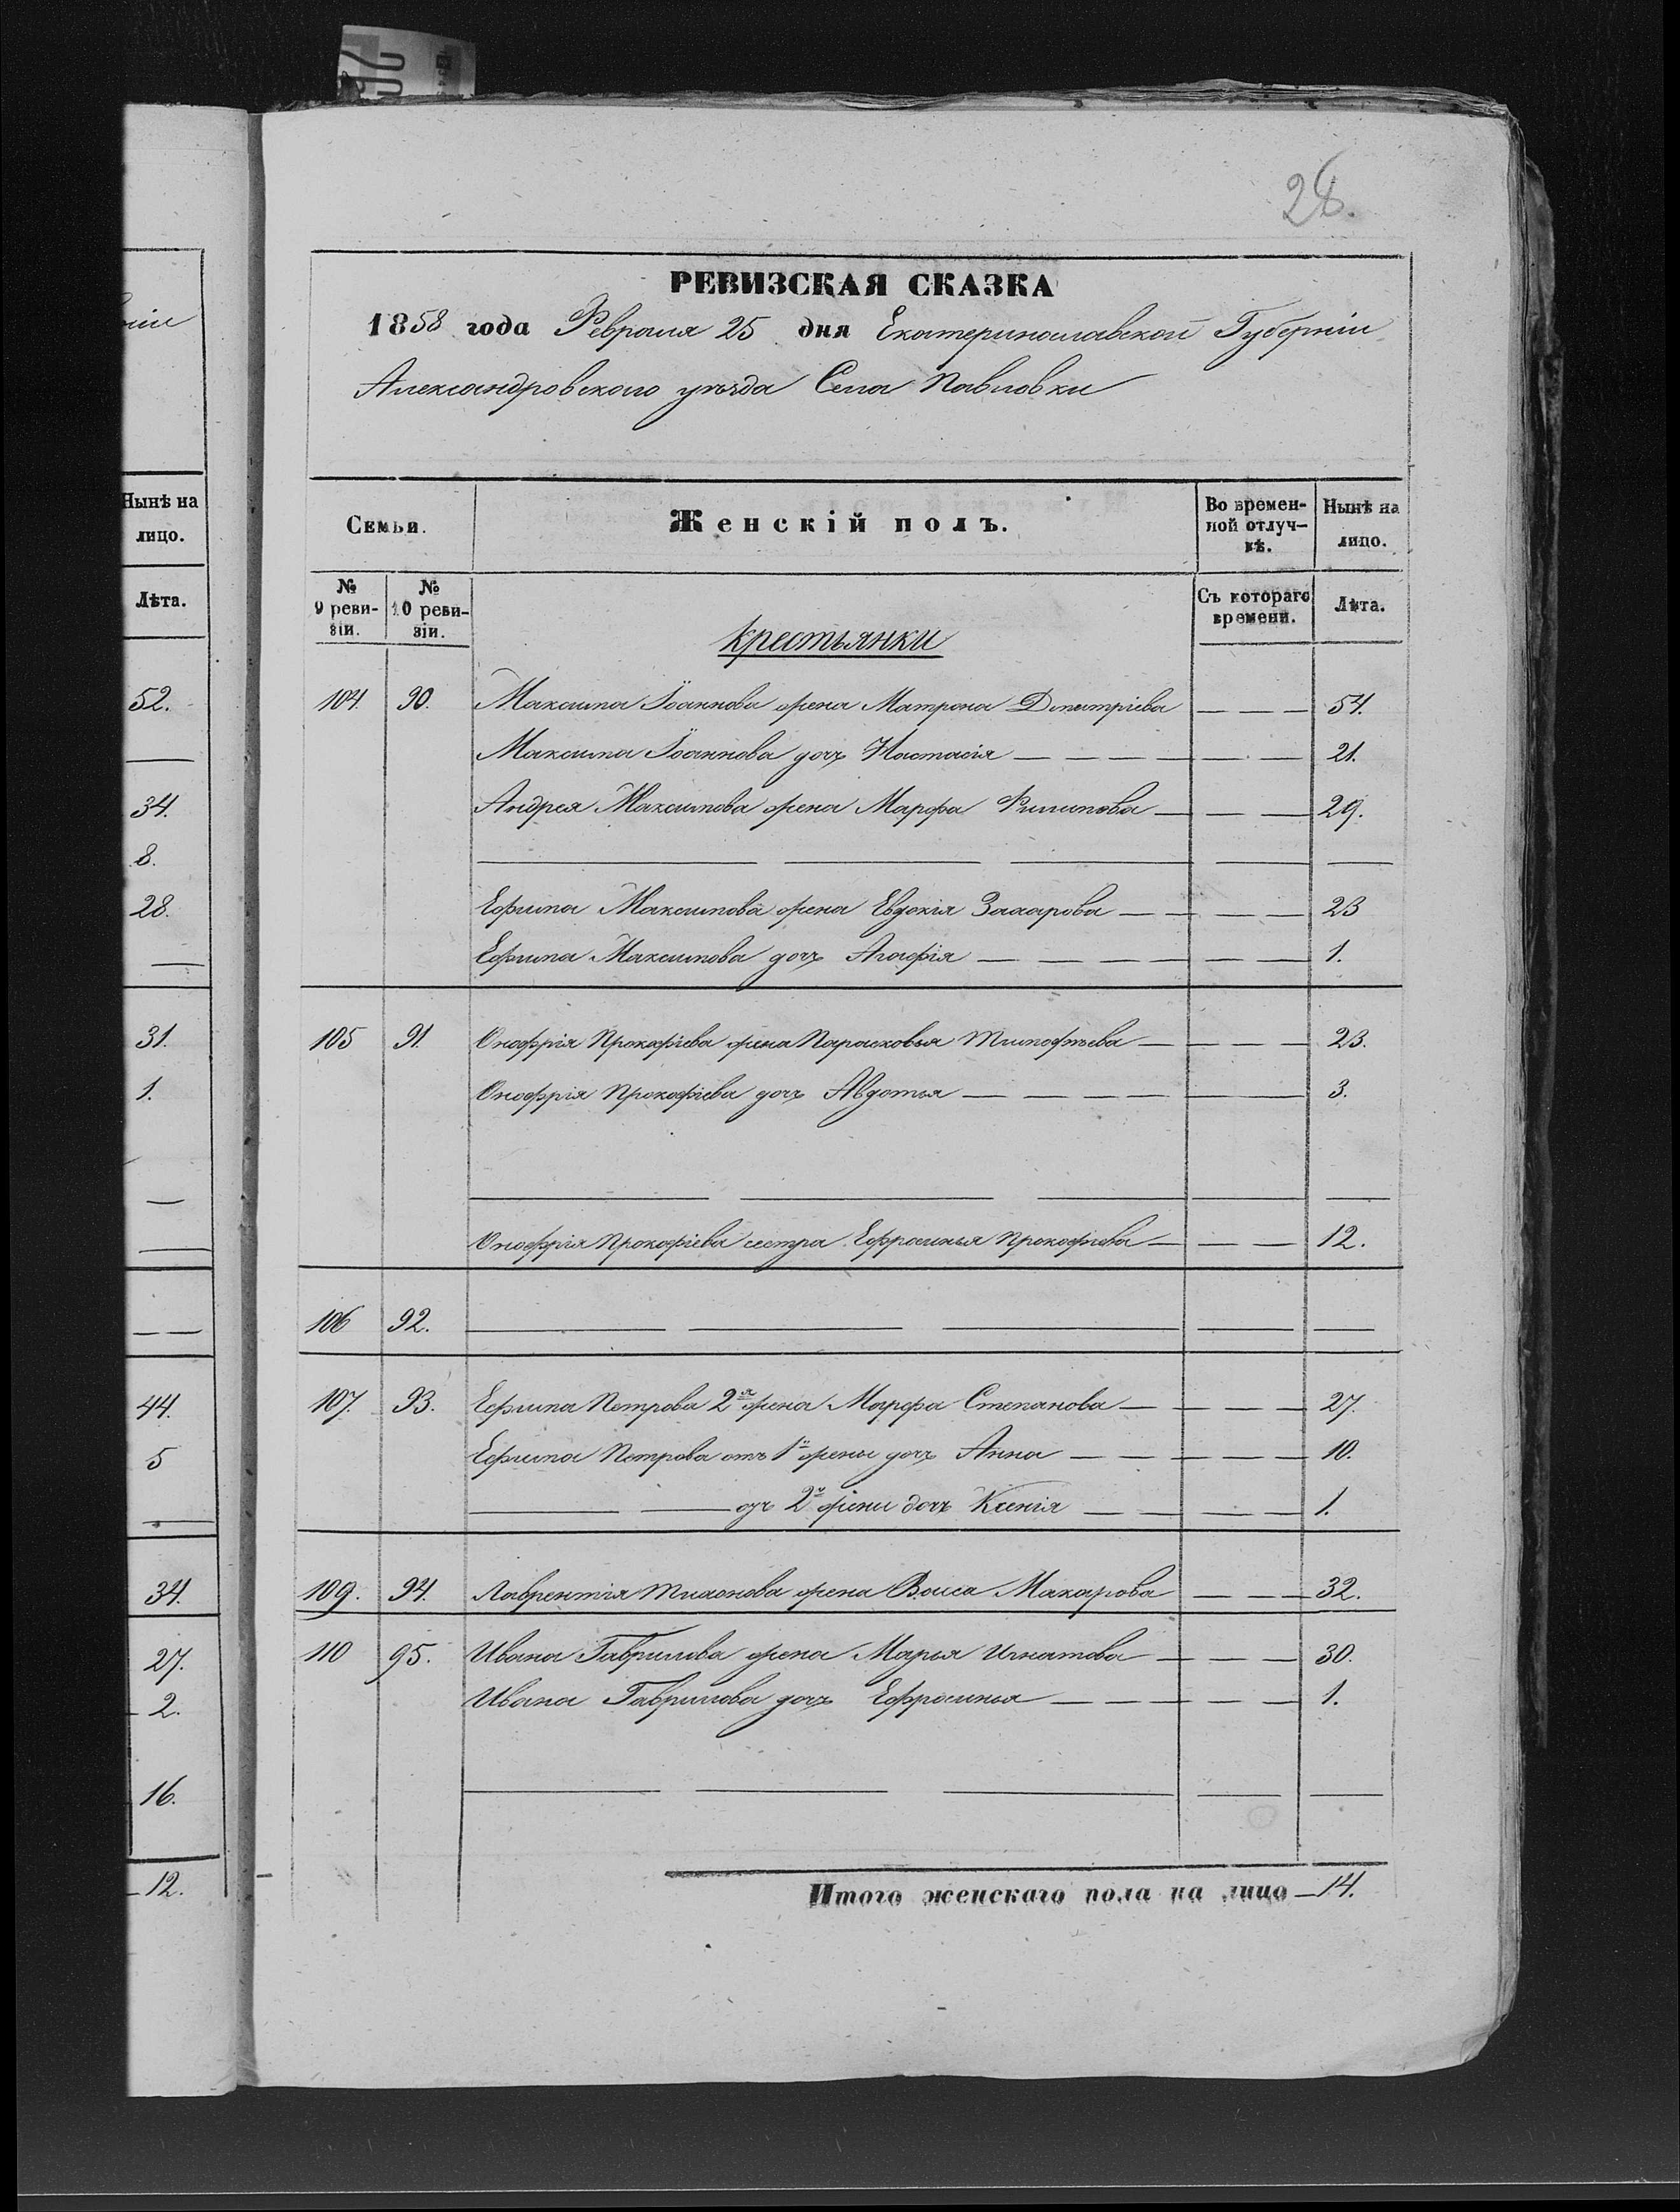 28.
РЕВИЗСКАЯ СКАЗКА
1858 года Февраля 25 дня Екатеринославской Губерніи
Александровскаго уѣзда Села Павловки
ніи
Нынѣ на
лицо.
Лѣта.
52.
34.
8.
28.
31.
1.
44.
5
34.
27.
2.
16.
12.
Семьи.
Женскій полъ.
Во времен-
ной отлуч-
кѣ.
Нынѣ на
лицо.
№
9 реви-
зіи.
№
10 реви-
зіи.
Съ котораго
времени.
Лѣта.
Крестьянки
104. 90. Максима Іоаннова жена Матрона Дмитріева — — — 54.
Максима Іоаннова дочь Настасія — — — — — — 21.
Андрея Максимова жена Марфа Филипова — — — 29.
Ефима Максимова жена Евдокія Захарова — — — — 23
Ефима Максимова дочь Агафія — — — — — — 1.
105 91. Онофрія Прокофіева жена Парасковья Тимофѣева — — — — 23.
Онофрія Прокофіева дочь Авдотья — — — — — 3.
Онофрія Прокофіева сестра Ефросинья Прокофіева — — — 12.
106 92.
107. 93. Ефима Петрова 2я жена Марфа Степанова — — — — 27.
Ефима Петрова отъ 1й жены дочь Анна — — — — — 10.
— — отъ 2й жены дочь Ксенія — — — — 1.
109. 94. Лаврентія Тихонова жена Васса Макарова — — — 32.
110 95. Ивана Гаврилова жена Марья Игнатова — — — 30.
Ивана Гаврилова дочь Ефросинья — — — — — 1.
Итого женскаго пола на лицо — 14.